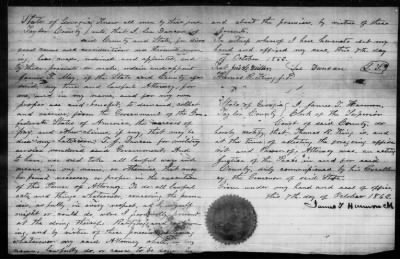 State of Georgia, Know all men by these pres-
Taylor County } ents that I, Lee Duncan of
said county and State, for divers
good causes and considerations me thereunto mov-
ing, have made, ordained and appointed and
by these presents do make, ordain and appoint
James T. May, of the State and County afore-
said, my true and lawful Attorney, for
me and in my name, and for my own
proper use and benefit, to demand, collect
and receive, from the Government of the Con-
federate States of America, the
pay, and other claims, if any, that may be
due my
services rendered said Government. And
to have, use and take all lawful ways and
means, in my name, or otherwise, that may
be found necessary or proper in the execution
of this Power of Attorney. To do all lawful
acts and things whatever, concerning the premi-
ses, as fully, in every respect, as I myself
might or could do, were I personally present
at the doing thereof. Ratifying and
ing, and by virtue of these presents
whatsoever my said Attorney shall, in my
name, lawfully do, or cause to be done in
and about the premises, by virtue of these
presents.
In witness whereof I have hereunto set my
hand and affixed my seal, this 7th day
of October 1862.
Lee Duncan
Thomas R. King, J.P.
State of Georgia } I James T. Harmon,
Taylor County, } Clerk of the Superior
Court of said County, do
hereby certify, that Thomas R. King is, and
at the time of attesting the foregoing
Power of Attorney, was an acting
Justice of the Peace in and for said
County, duly commissioned by his Excellency
the Governor of said State.
Given under my hand and seal of office
this 7th day of October 1862.
James T. Harmon Clk